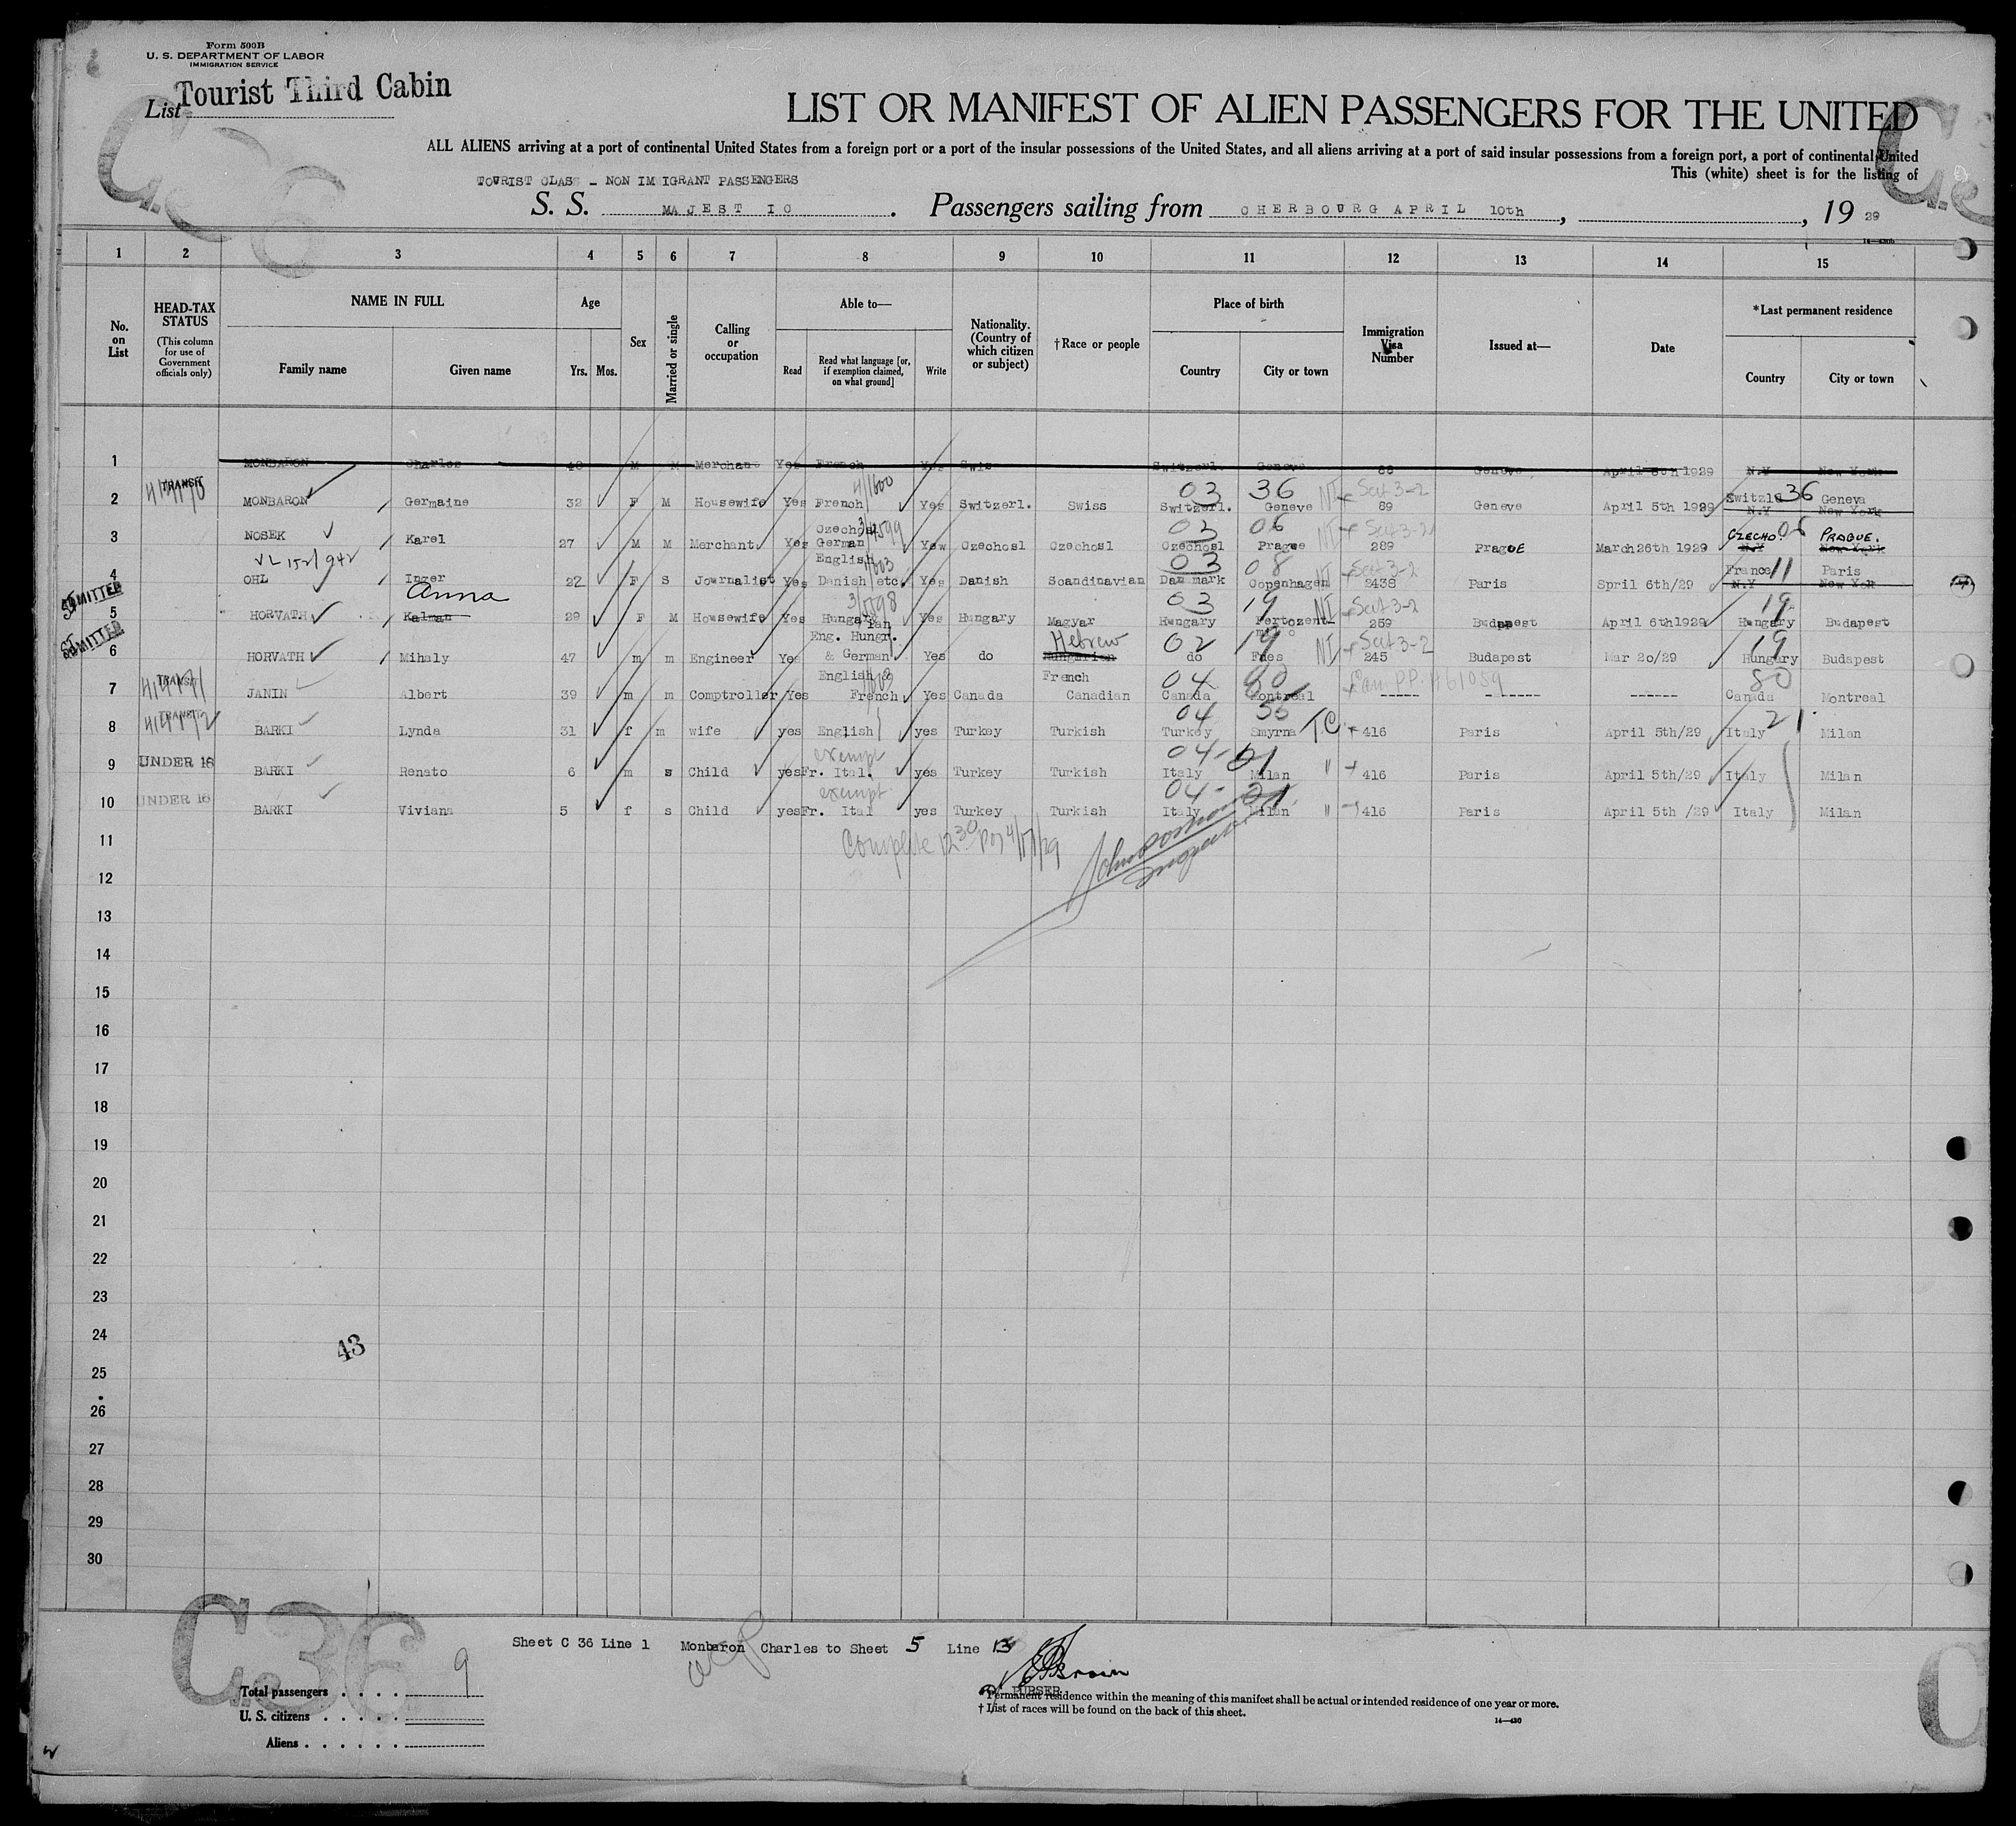 Form 500B
U. S. DEPARTMENT OF LABOR
IMMIGRATION SERVICE
Tourist Third Cabin
List
LIST OR MANIFEST OF ALIEN PASSENGERS FOR THE UNITED
ALL ALIENS arriving at a port of continental United States from a foreign port or a port of the insular possessions of the United States, and all aliens arriving at a port of said insular possessions from a foreign port, a port of continental United
This (white) sheet is for the listing of
TOURIST CLASS - NON IMMIGRANT PASSENGERS
S. S. MAJESTIC. Passengers sailing from CHERBOURG APRIL 10th, , 19 29
1 2 3 4 5 6 7 8 9 10 11 12 13 14 15
No. on List
HEAD-TAX STATUS
(This column for use of Government officials only)
NAME IN FULL
Family name Given name
Age
Yrs. Mos.
Sex
Married or single
Calling or occupation
Able to—
Read
Read what language [or, if exemption claimed, on what ground]
Write
Nationality. (Country of which citizen or subject)
†Race or people
Place of birth
Country City or town
Immigration Visa Number
Issued at—
Date
*Last permanent residence
Country City or town
1 MONBARON Charles 40 M M Merchant Yes French Yes Swis Switzerl. Geneve 88 Geneve April 5th 1929 N.Y New York
TRANSIT 03 36 NI Sect 3-2 36
2 MONBARON Germaine 32 F M Housewife Yes French Yes Switzerl. Swiss Switzerl. Geneve 89 Geneve April 5th 1929 Switzld Geneva
N.Y New York
3 NOSEK Karel 27 M M Merchant Yes Czechosl German English Yew Czechosl Czechosl 03 06 NI Sect 3-2 Czechosl Prague 289 Prague March 26th 1929 CZECHO. 06 PRAGUE.
N.Y New York
4 OHL Inger 22 F S Journalist Yes Danish etc. Yes Danish Scandinavian 03 08 NI Sect 3-2 Danmark Copenhagen 2438 Paris Spril 6th/29 France 11 Paris
N.Y New Yok
ADMITTED
Anna
5 HORVATH Kalman 29 F M Housewife Yes Hungarian Yes Hungary Magyar 03 19 NI Sect 3-2 Hungary 259 Budapest April 6th 1929 19 Hungary Budapest
ADMITTED
6 HORVATH Mihaly 47 m m Engineer Yes Eng. Hungr. & German Yes do Hebrew 02 19 NI Sect 3-2 do 245 Budapest Mar 20/29 19 Hungary Budapest
TRANSIT
7 JANIN Albert 39 m m Comptroller Yes English & French Yes Canada French Canadian 04 80 Canada Montreal Can. P.P. ----- ------- ------ 80 Canada Montreal
TRANSIT
8 BARKI Lynda 31 f m wife yes English yes Turkey Turkish 04 Turkey Smyrna TC 416 Paris April 5th/29 21 Italy Milan
UNDER 16
9 BARKI Renato 6 m s Child yes exempt Fr. Ital. yes Turkey Turkish 04 21 Italy Milan " 416 Paris April 5th/29 Italy Milan
UNDER 16
10 BARKI Viviana 5 f s Child yes exempt Fr. Ital yes Turkey Turkish 04 21 Italy Milan " 416 Paris April 5th /29 Italy Milan
11
Complete 12 30 4/17/29
12
13
14
15
16
17
18
19
20
21
22
23
24
43
25
26
27
28
29
30
C36
Sheet C 36 Line 1 Monbaron Charles to Sheet 5 Line 13
PURSER
Total passengers . . . . 9
U. S. citizens . . . . .
Aliens . . . . . .
* Permanent residence within the meaning of this manifest shall be actual or intended residence of one year or more.
† List of races will be found on the back of this sheet.
14—430